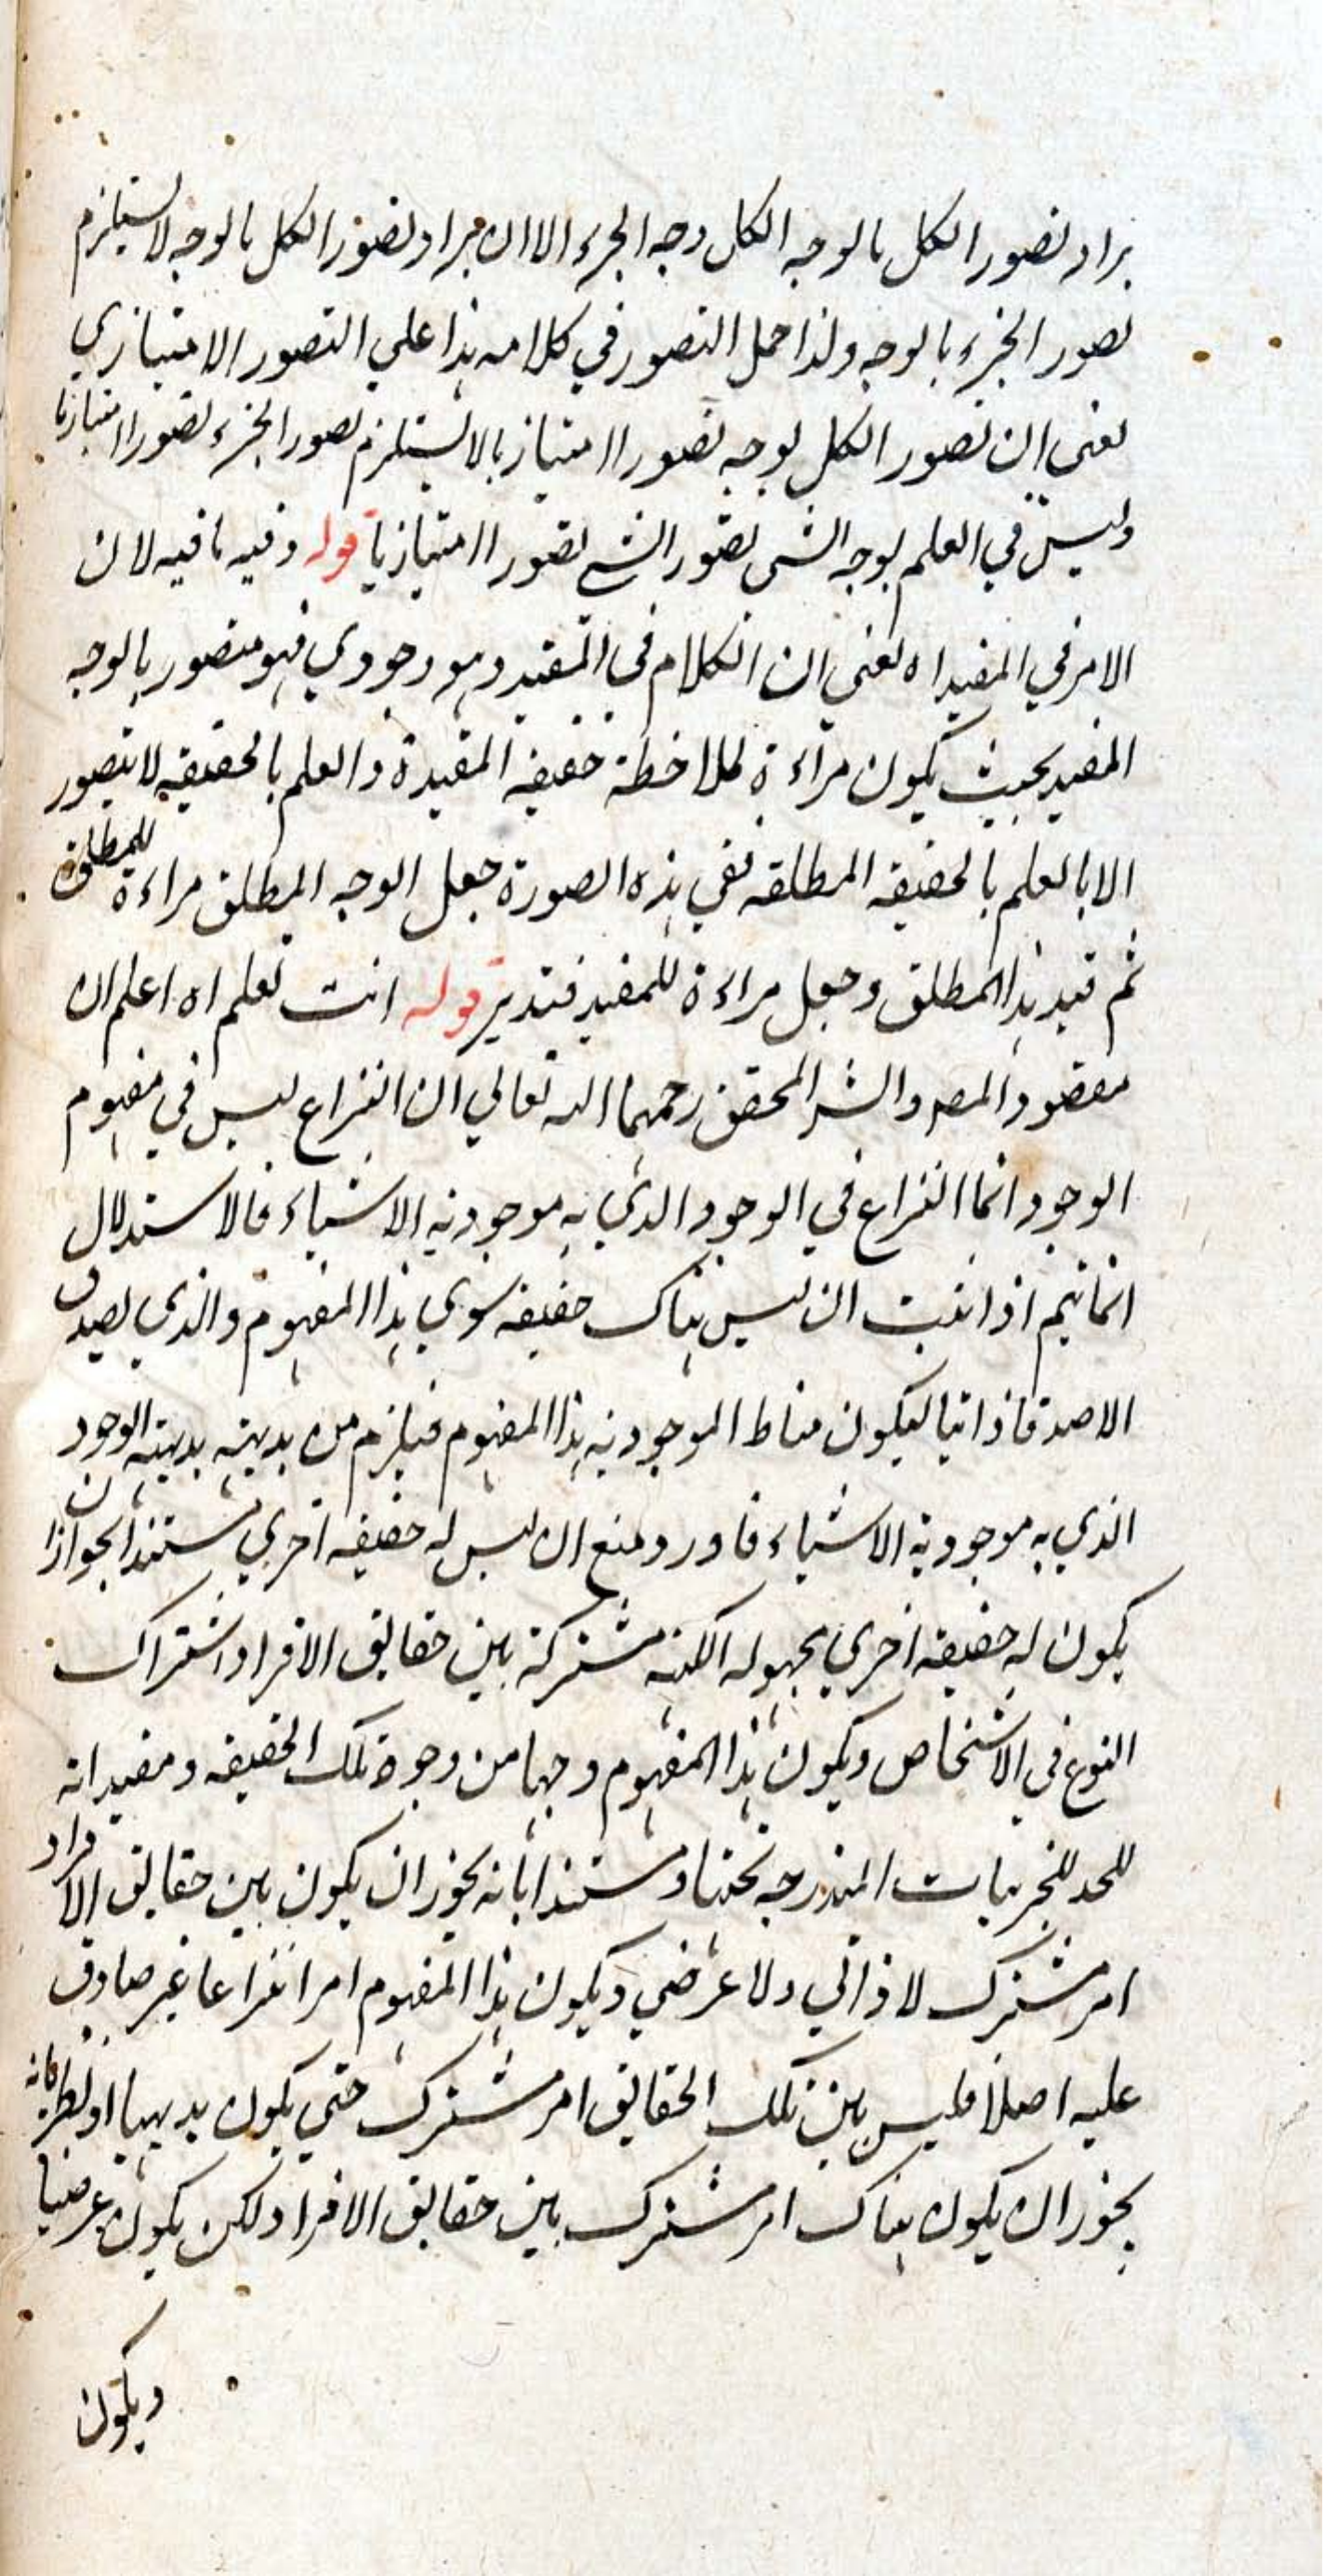 يراد تصور الكل بالوجه الكل وجه الجزء الا ان يراد تصور الكل بالوجه لا يستلزم
تصور الجزء بالوجه ولذا حمل التصور في كلامه هذا علي التصور الامتيازي
يعني ان تصور الكل بوجه تصورا امتيازيا لا يستلزم تصور الجزء تصورا امتيازيا
وليس في العلم بوجه الشي تصور الشي تصورا امتيازيا قوله وفيه ما فيه لان
الامر في المقيد اه يعني ان الكلام في المقيد وهو وجودي فهو متصور بالوجه
المقيد بحيث يكون مراءة لملاحظة حقيقه المقيدة والعلم بالحقيقه لا يتصور
الا بالعلم بالحقيقه المطلقه ففي هذه الصورة جعل الوجه المطلق مراءة للمطلق
ثم قيد هذا المطلق وجعل مراءة للمقيد فتدبر قوله انت تعلم اه اعلم ان
مقصود المصه والشر المحقق رحمهما الله تعالي ان النزاع ليس في مفهوم
الوجود انما النزاع في الوجود الذي به موجوديه الاشياء فالاستدلال
انما يتم اذا اثبت ان ليس هناك حقيقه سوي هذا المفهوم والذي يصدق
الا صدقا ذاتيا ليكون مناط الموجوديه هذا المفهوم فيلزم من بديهته بديهته الوجود
الذي به موجودية الاشياء فاورد منع ان ليس له حقيقه اخري مستندا لجواز ان
يكون له حقيقه اخري مجهوله الكنه مشتركة بين حقايق الافراد اشتراك
النوع في الاشخاص ويكون هذا المفهوم وجها من وجوه تلك الحقيقه ومقيداته
للحد للجزيات المندرجه تحتها ومستندا بانه يجوز ان يكون بين حقايق الافراد
امر مشترك لا ذاتي ولا عرضي ويكون هذا المفهوم امرا انتزاعيا غير صادق
عليه اصلا فليس بين تلك الحقايق امر مشترك حتي يكون بديهيا او نظريا فانه
يجوز ان يكون هناك امر مشترك بين حقايق الافراد لكن يكون عرضيا
ويكون